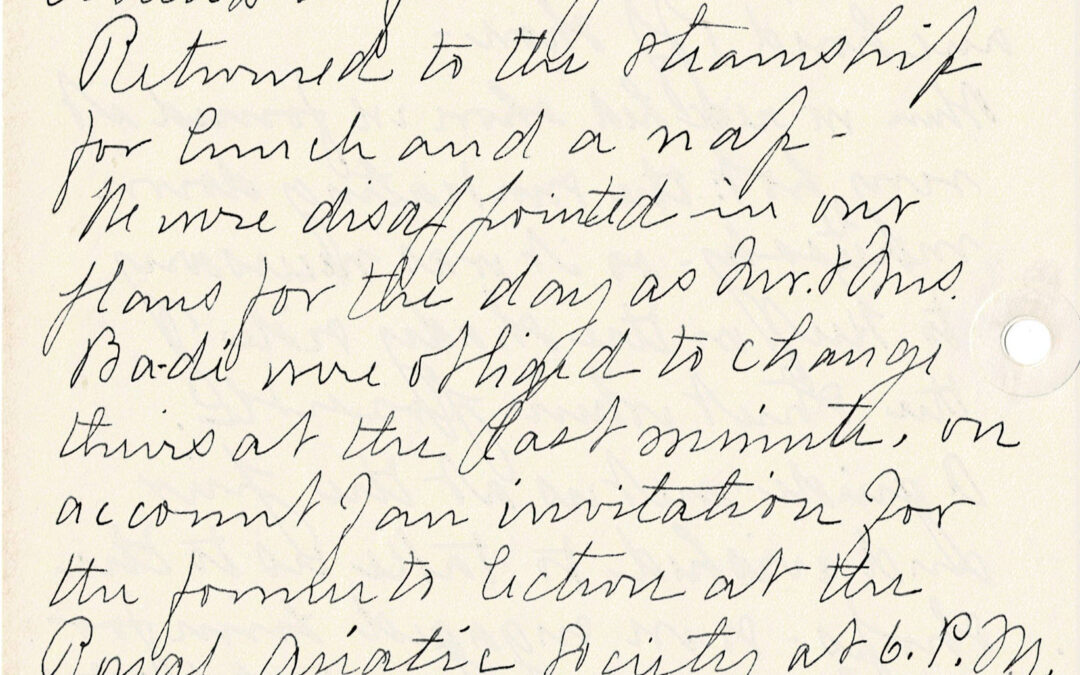 Returned to the steamship
for lunch and a nap -
We were disappointed in our
plans for the day as Mr. & Mrs.
Badi were obliged to change
theirs at the last minute, on
account of an invitation for
the former to lecture at the
Royal Asiatic Society at 6. P.M.